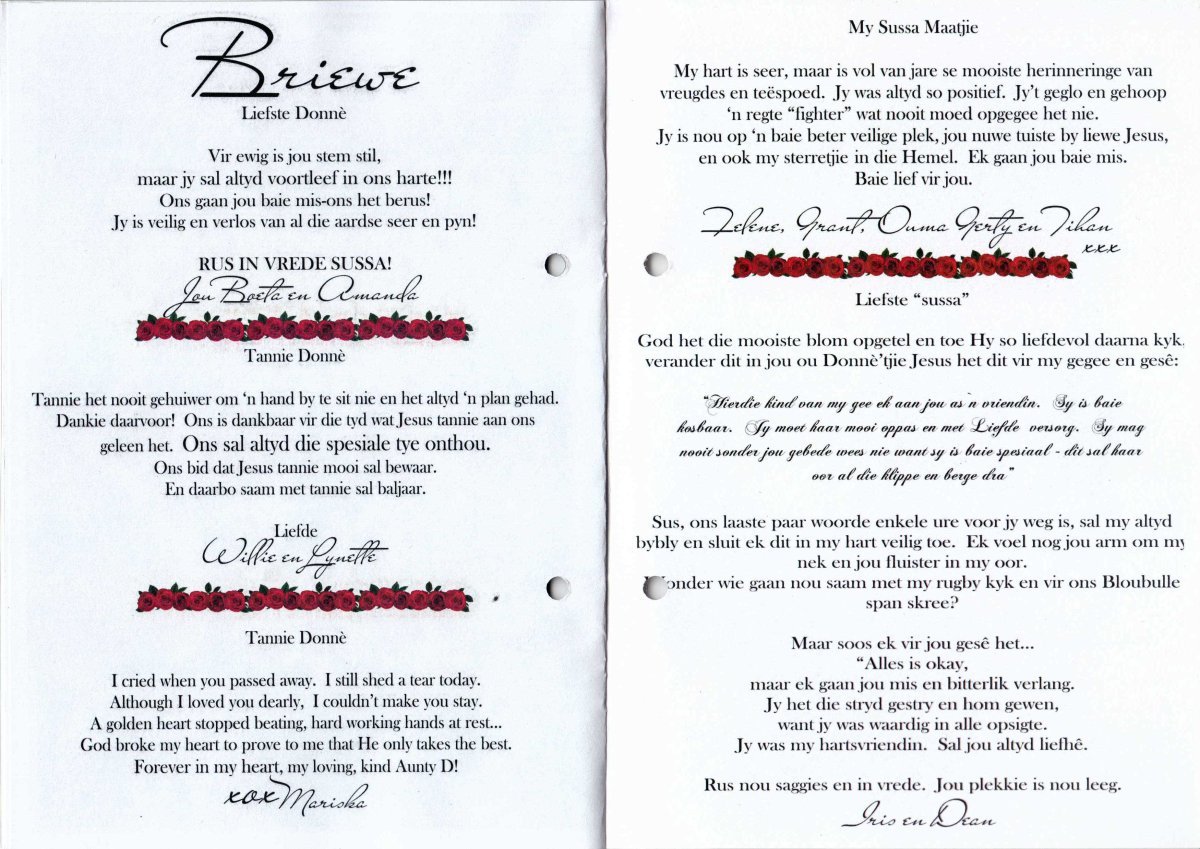 Briewe
Liefste Donnè
Vir ewig is jou stem stil,
maar jy sal altyd voortleef in ons harte!!!
Ons gaan jou baie mis-ons het berus!
Jy is veilig en verlos van al die aardse seer en pyn!
RUS IN VREDE SUSSA!
Jou Boeta en Amanda
Tannie Donnè
Tannie het nooit gehuiwer om ‘n hand by te sit nie en het altyd ‘n plan gehad.
Dankie daarvoor!  Ons is dankbaar vir die tyd wat Jesus tannie aan ons
geleen het.  Ons sal altyd die spesiale tye onthou.
Ons bid dat Jesus tannie mooi sal bewaar.
En daarbo saam met tannie sal baljaar.
Liefde
Willie en Lynette
Tannie Donnè
I cried when you passed away.  I still shed a tear today.
Although I loved you dearly,  I couldn’t make you stay.
A golden heart stopped beating, hard working hands at rest...
God broke my heart to prove to me that He only takes the best.
Forever in my heart, my loving, kind Aunty D!
xox Mariska
My Sussa Maatjie
My hart is seer, maar is vol van jare se mooiste herinneringe van
vreugdes en teëspoed.  Jy was altyd so positief.  Jy’t geglo en gehoop
‘n regte “fighter” wat nooit moed opgegee het nie.
Jy is nou op ‘n baie beter veilige plek, jou nuwe tuiste by liewe Jesus,
en ook my sterretjie in die Hemel.  Ek gaan jou baie mis.
Baie lief vir jou.
Grant, Ouma Gerty en Tihan
xxx
Liefste “sussa”
God het die mooiste blom opgetel en toe Hy so liefdevol daarna kyk,
verander dit in jou ou Donnè’tjie Jesus het dit vir my gegee en gesê:
“Hierdie kind van my gee ek aan jou as `n vriendin.  Sy is baie
kosbaar.  Jy moet haar mooi oppas en met Liefde  versorg.  Sy mag
nooit sonder jou gebede wees nie want sy is baie spesiaal - dit sal haar
oor al die klippe en berge dra”
Sus, ons laaste paar woorde enkele ure voor jy weg is, sal my altyd
bybly en sluit ek dit in my hart veilig toe.  Ek voel nog jou arm om my
nek en jou fluister in my oor.
Wonder wie gaan nou saam met my rugby kyk en vir ons Bloubulle
span skree?
Maar soos ek vir jou gesê het...
“Alles is okay,
maar ek gaan jou mis en bitterlik verlang.
Jy het die stryd gestry en hom gewen,
want jy was waardig in alle opsigte.
Jy was my hartsvriendin.  Sal jou altyd liefhê.
Rus nou saggies en in vrede.  Jou plekkie is nou leeg.
Iris en Dean